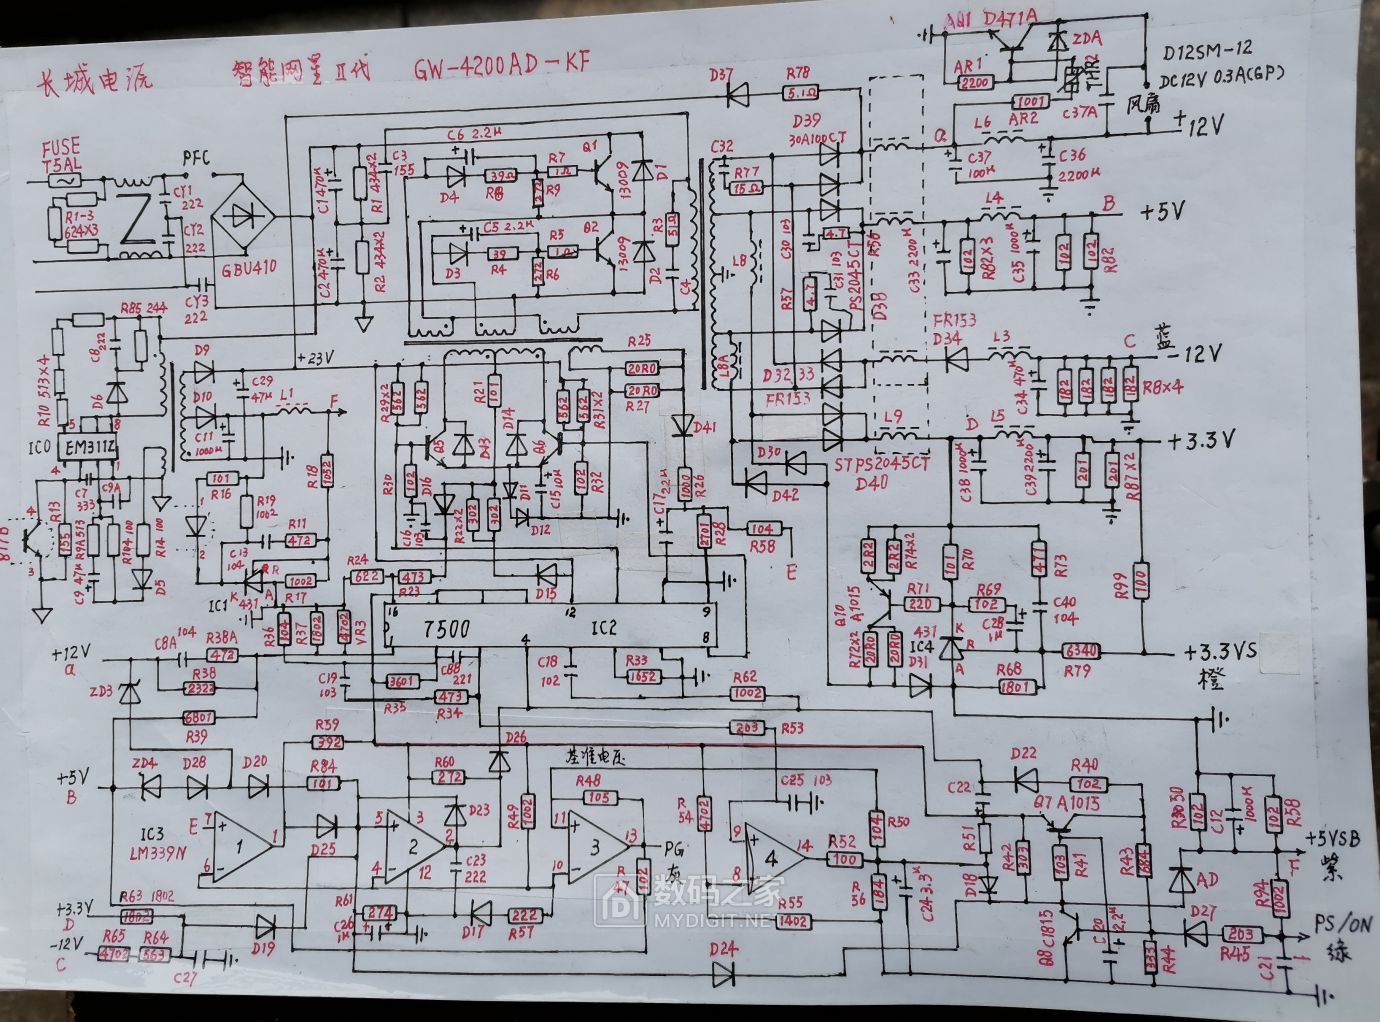 长城电源 智能网星 II代 GW-4200AD-KF
AQ1 D471A
ZDA
AR1
2200
THR2
1001
AR2
C37A
D12SM-12
DC12V 0.3A(GP)
风扇
+12V
FUSE
T5AL
PFC
R1-3
624X3
CY1
222
CY2
222
CY3
222
GBU410
C1 470μ
C2 470μ
R1 434X2
R2 434X2
C3
155
C6 2.2μ
D4
39Ω
R8
272
R9
R7
1Ω
Q1
13009
D1
C5 2.2μ
D3
39
R4
272
R6
R5
1Ω
Q2
13009
D2
R3
51Ω
C4
D37
R78
5.1Ω
D39
30A100CT
C32
R77
15Ω
C30 103
4.7
R56
C31 103
R57
4.7
PS2045CT
D38
L8
L8A
a
L6
C37
100μ
C36
2200μ
C33 2200μ
102
R82X3
L4
C35 1000μ
102
102
R82
B
+5V
FR153
D34
L3
C34 470μ
182
182
182
182
R8X4
C
蓝
-12V
D32 33
FR153
L9
STPS2045CT
D40
D
L5
C38 1000μ
C39 2200μ
201
201
R87X2
+3.3V
D30
D42
R85 244
R10 513X4
C8
222
D6
IC0
EM311Z
5
8
4
1
C7
333
C9A
R13
155
R9A 513
R104 100
R14 100
C9 47μ
D5
B17B
4
3
D9
D10
C29
47μ
C11
1000μ
+23V
L1
F
101
R16
R19
1002
R18
1052
1
2
C13
104
R11
472
K
R
A
IC1 431
1002
R17
R25
20R0
20R0
R27
D41
R29X2
562
562
R21
101
D14
D13
Q5
Q6
562
562
R31X2
R30
102
D16
C16
103
R22X2
302
302
D11
D12
C15 10μ
102
R32
1000
R26
C17 2.2μ
2701
R28
104
R58
E
D15
R24
622
473
R23
16
12
9
7500
IC2
1
4
8
R36
104
R37
1802
VR3
4702
+12V
a
C8A
104
R38A
472
R38
2323
6801
R39
ZD3
C19
103
3601
R35
C88
221
473
R34
C18
102
R33
1652
R62
1002
203
R53
2R2
2R2
R74X2
Q10
A1015
R71
220
101
R70
R69
102
C28
1μ
471
R73
C40
104
431
IC4
K
R
A
R72X2
20R0
20R0
D31
R68
1801
6340
R79
R99
100
+3.3VS
橙
+5V
B
ZD4
D28
D20
R59
392
R84
101
IC3
LM339N
E
7
6
1
1
D25
R60
272
D26
D23
5
3
2
2
4
12
C23
222
R49
1002
基准电压
R48
105
11
10
3
13
PG
灰
R
47
102
R
54
4702
C25 103
9
8
4
14
R52
100
104
R50
R
56
184
C24 3.3μ
R55
1402
R61
274
C26
1μ
D17
222
R57
D24
+3.3V
D
R63 1802
1802
-12V
C
R65
4702
R64
563
D19
C27
D22
R40
102
C22
Q7 A1015
R51
R42
303
103
R41
R43
684
D18
Q8 C1815
C20
2.2μ
333
R44
AD
D27
203
R45
102
C12
1000μ
102
R58
F
R94
1002
C21
+5VSB
紫
PS/ON
绿
数码之家
MYDIGIT.NET